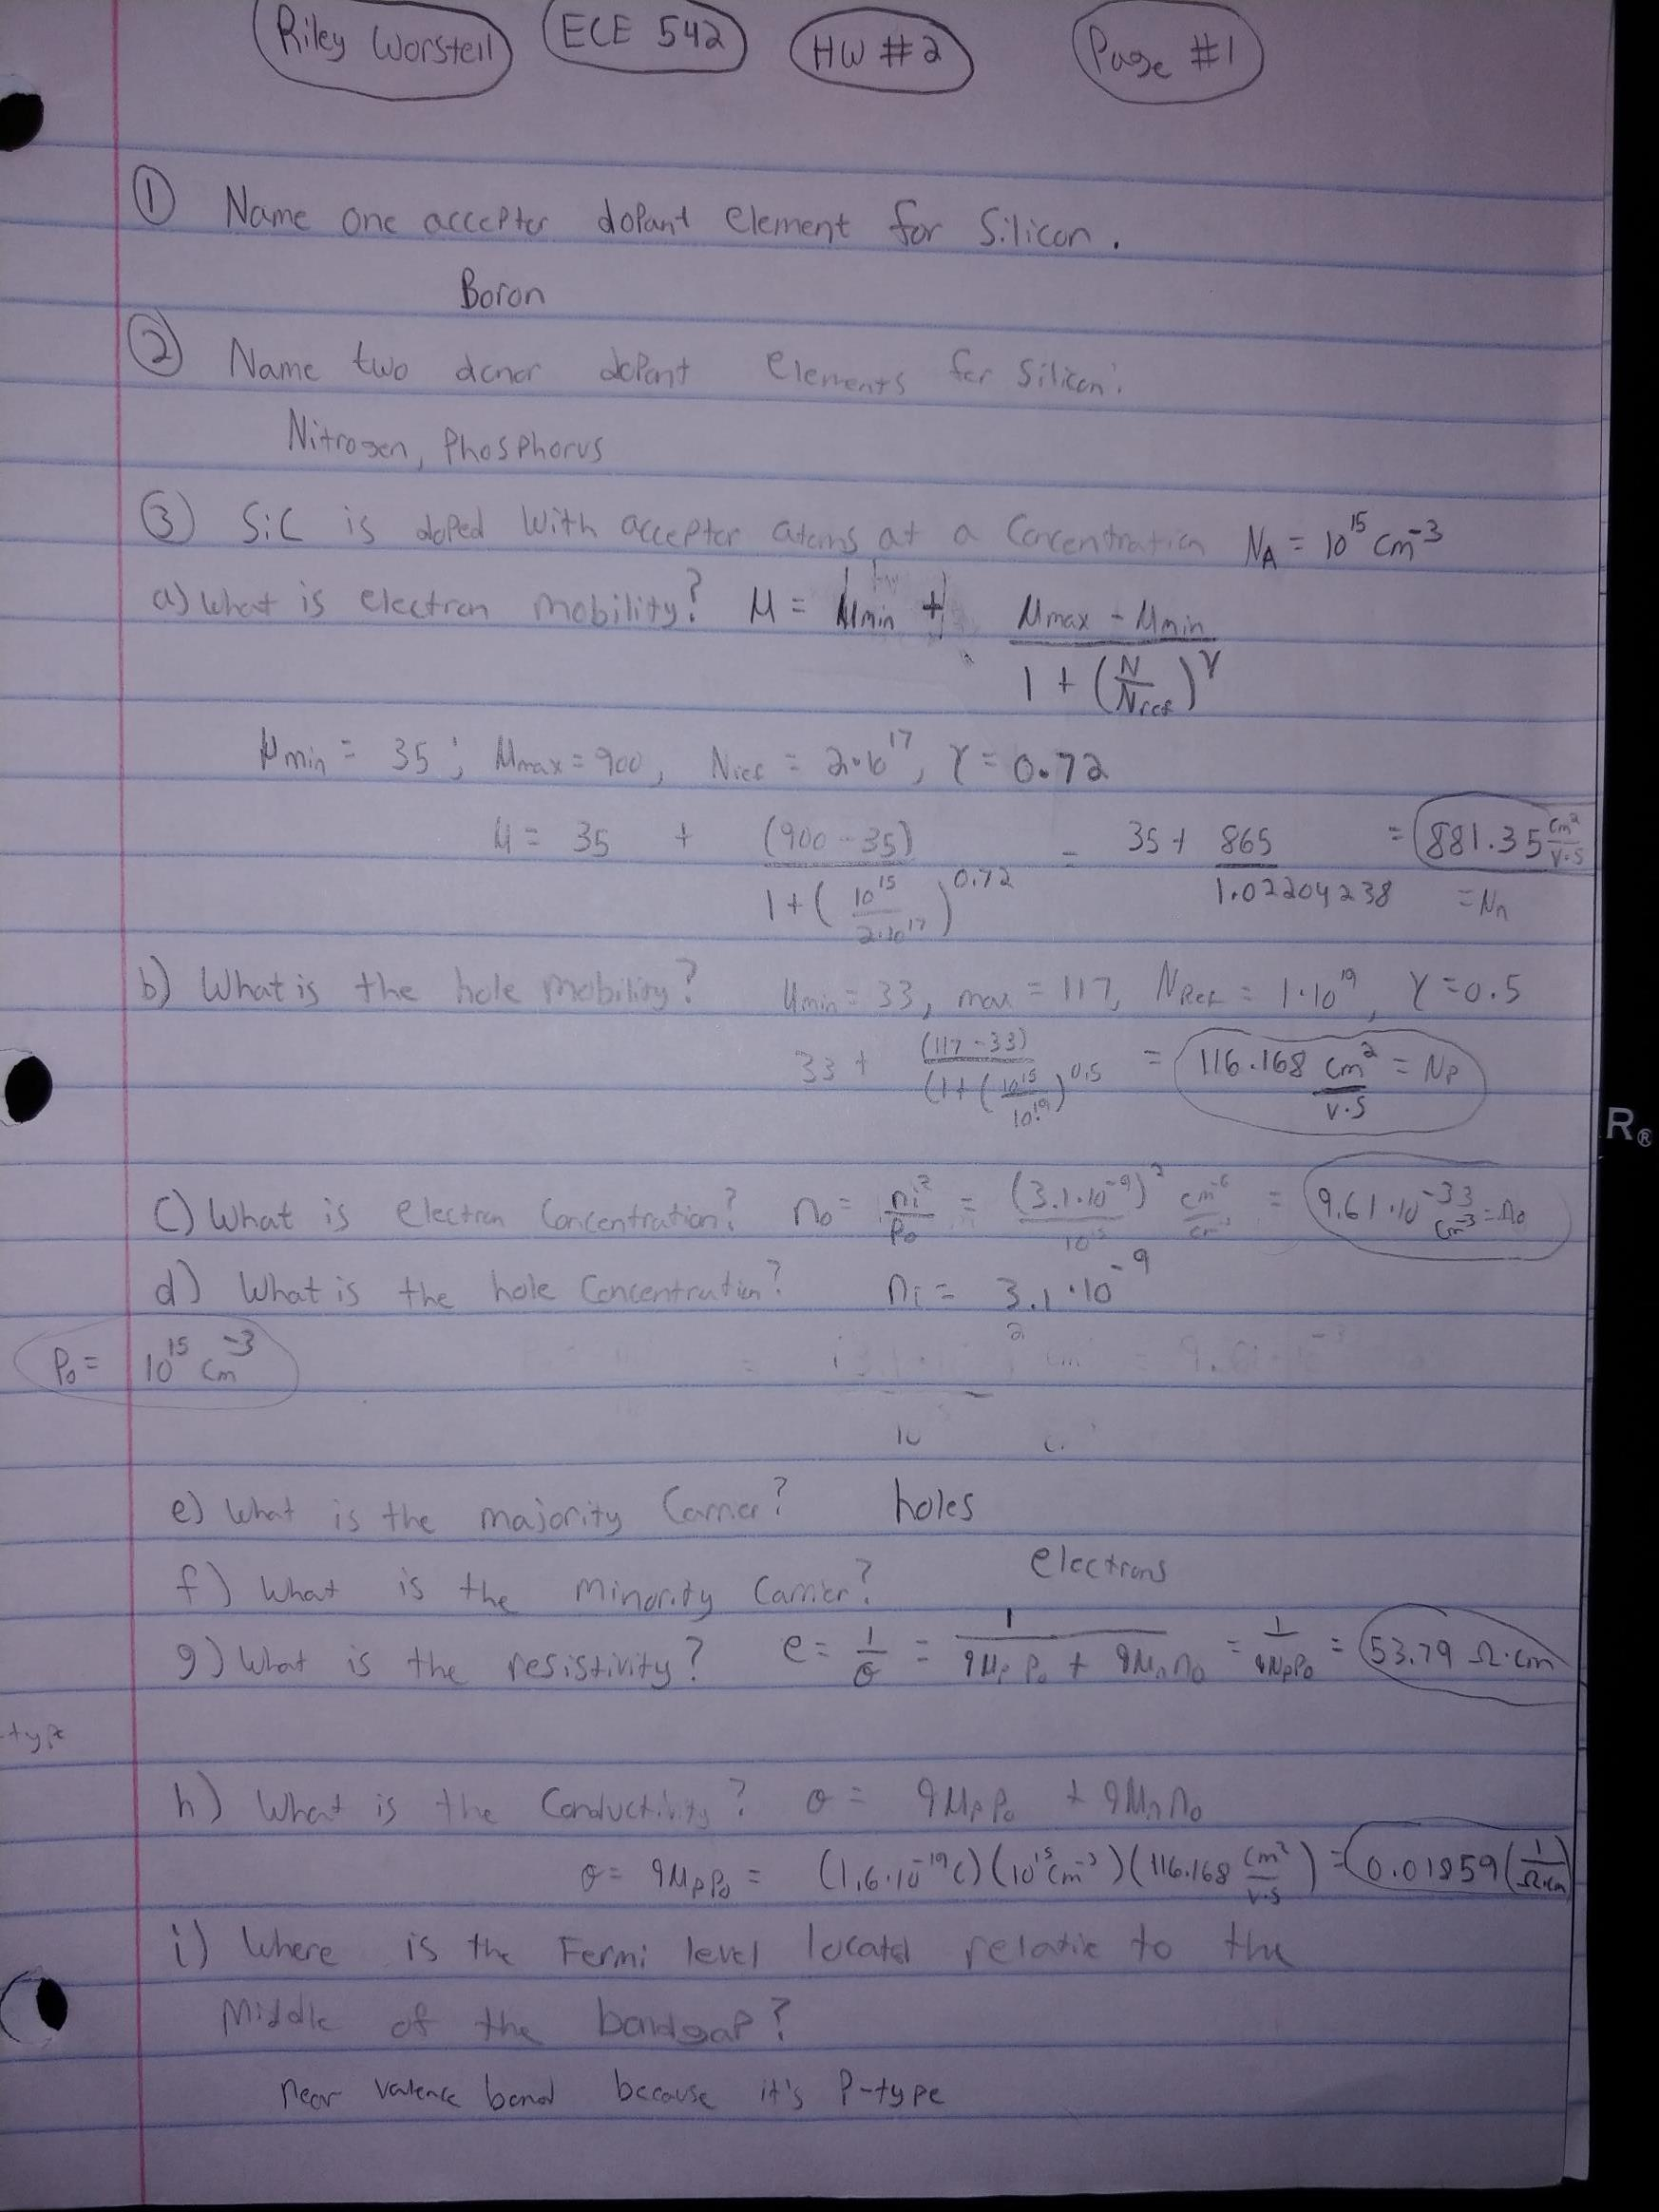 Riley Worstell ECE 542 HW #2 Page #1
① Name one accepter dopant element for Silicon.
Boron
② Name two donor dopant elements for Silicon.
Nitrogen, Phosphorus
③ SiC is doped with accepter atoms at a concentration N_A = 10^15 cm^-3
a) What is electron mobility? μ = μmin + (μmax - μmin) / (1 + (N/Nref)^γ)
μmin = 35; μmax = 900, Nref = 2·10^17, γ = 0.72
μ = 35 + (900 - 35) / (1 + (10^15 / 2·10^17)^0.72) = 35 + 865 / 1.02204238 = 881.35 cm²/V·S = μn
b) What is the hole mobility? μmin = 33, max = 117, NRef = 1·10^19, γ = 0.5
33 + (117 - 33) / (1 + (10^15 / 10^19)^0.5 = 116.168 cm²/V·S = μp
c) What is electron concentration? n₀ = ni²/P₀ = (3.1·10^-9)² cm^-6 / 10^15 cm^-3 = 9.61·10^-33 cm^-3 = n₀
d) What is the hole concentration? ni = 3.1·10^-9
P₀ = 10^15 cm^-3
e) What is the majority Carrier? holes
f) What is the minority Carrier? electrons
g) What is the resistivity? ρ = 1/σ = 1 / (qμpP₀ + qμnn₀) = 1/qμpP₀ = 53.79 Ω·cm
-type
h) What is the Conductivity? σ = qμpP₀ + qμnn₀
σ = qμpP₀ = (1.6·10^-19 C)(10^15 cm^-3)(116.168 cm²/V·S) = 0.01859 (1/Ω·cm)
i) Where is the Fermi level located relatie to the
Middle of the bandgap?
near valence band because it's P-type
R®